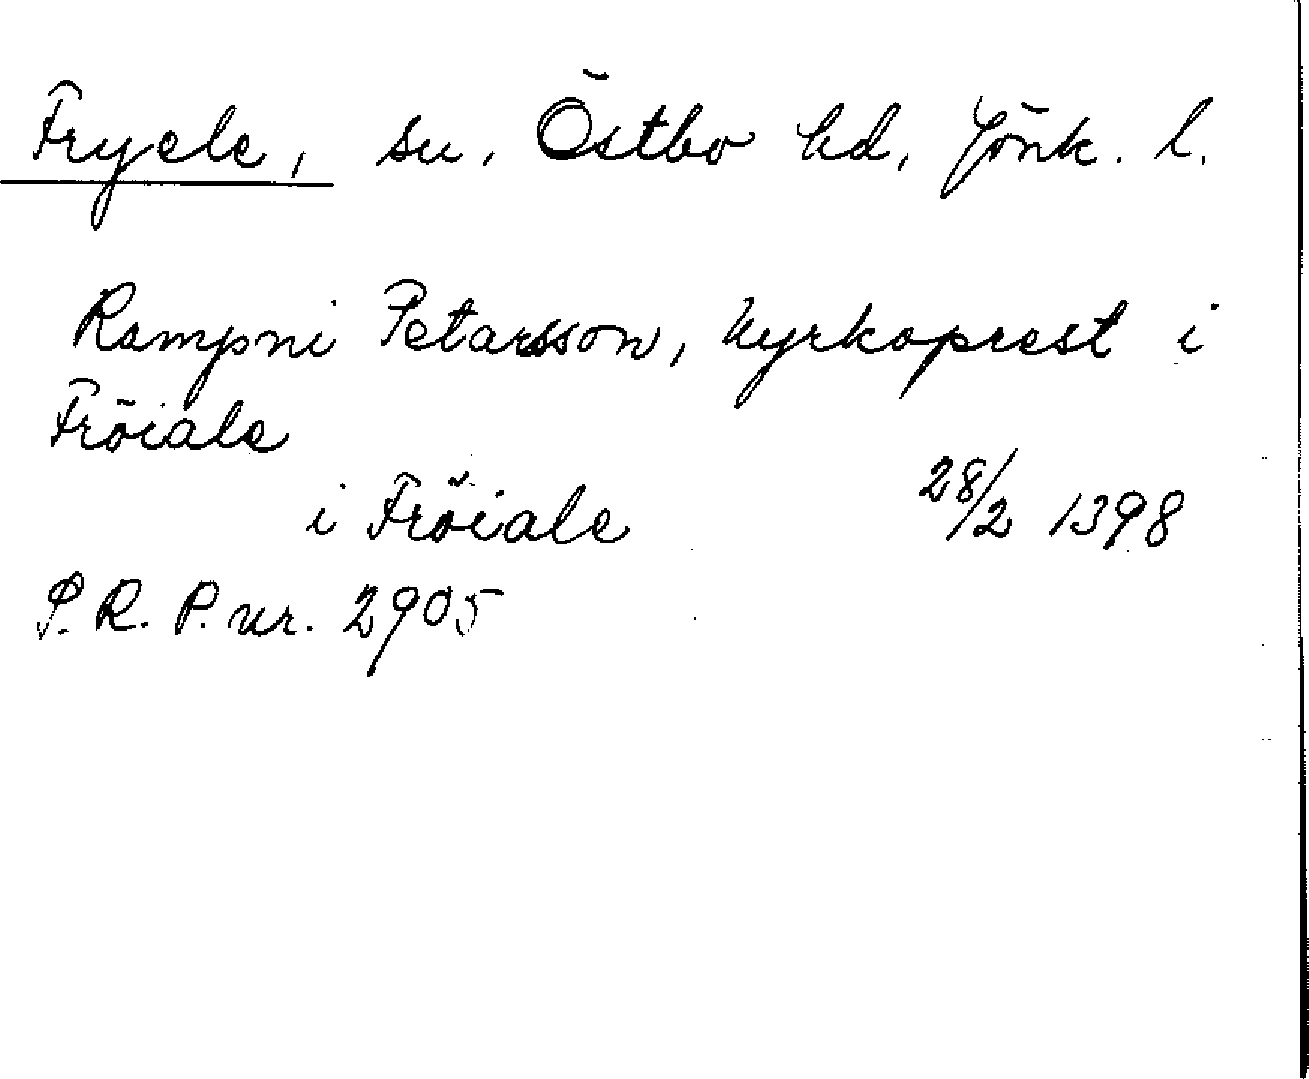 Fryele, sn. Östbo hd, Jönk. l.
Rampni Petarsson, kyrkoprest i
Fröiale
i Fröiale 28/2 1398
S. R. P. nr. 2905